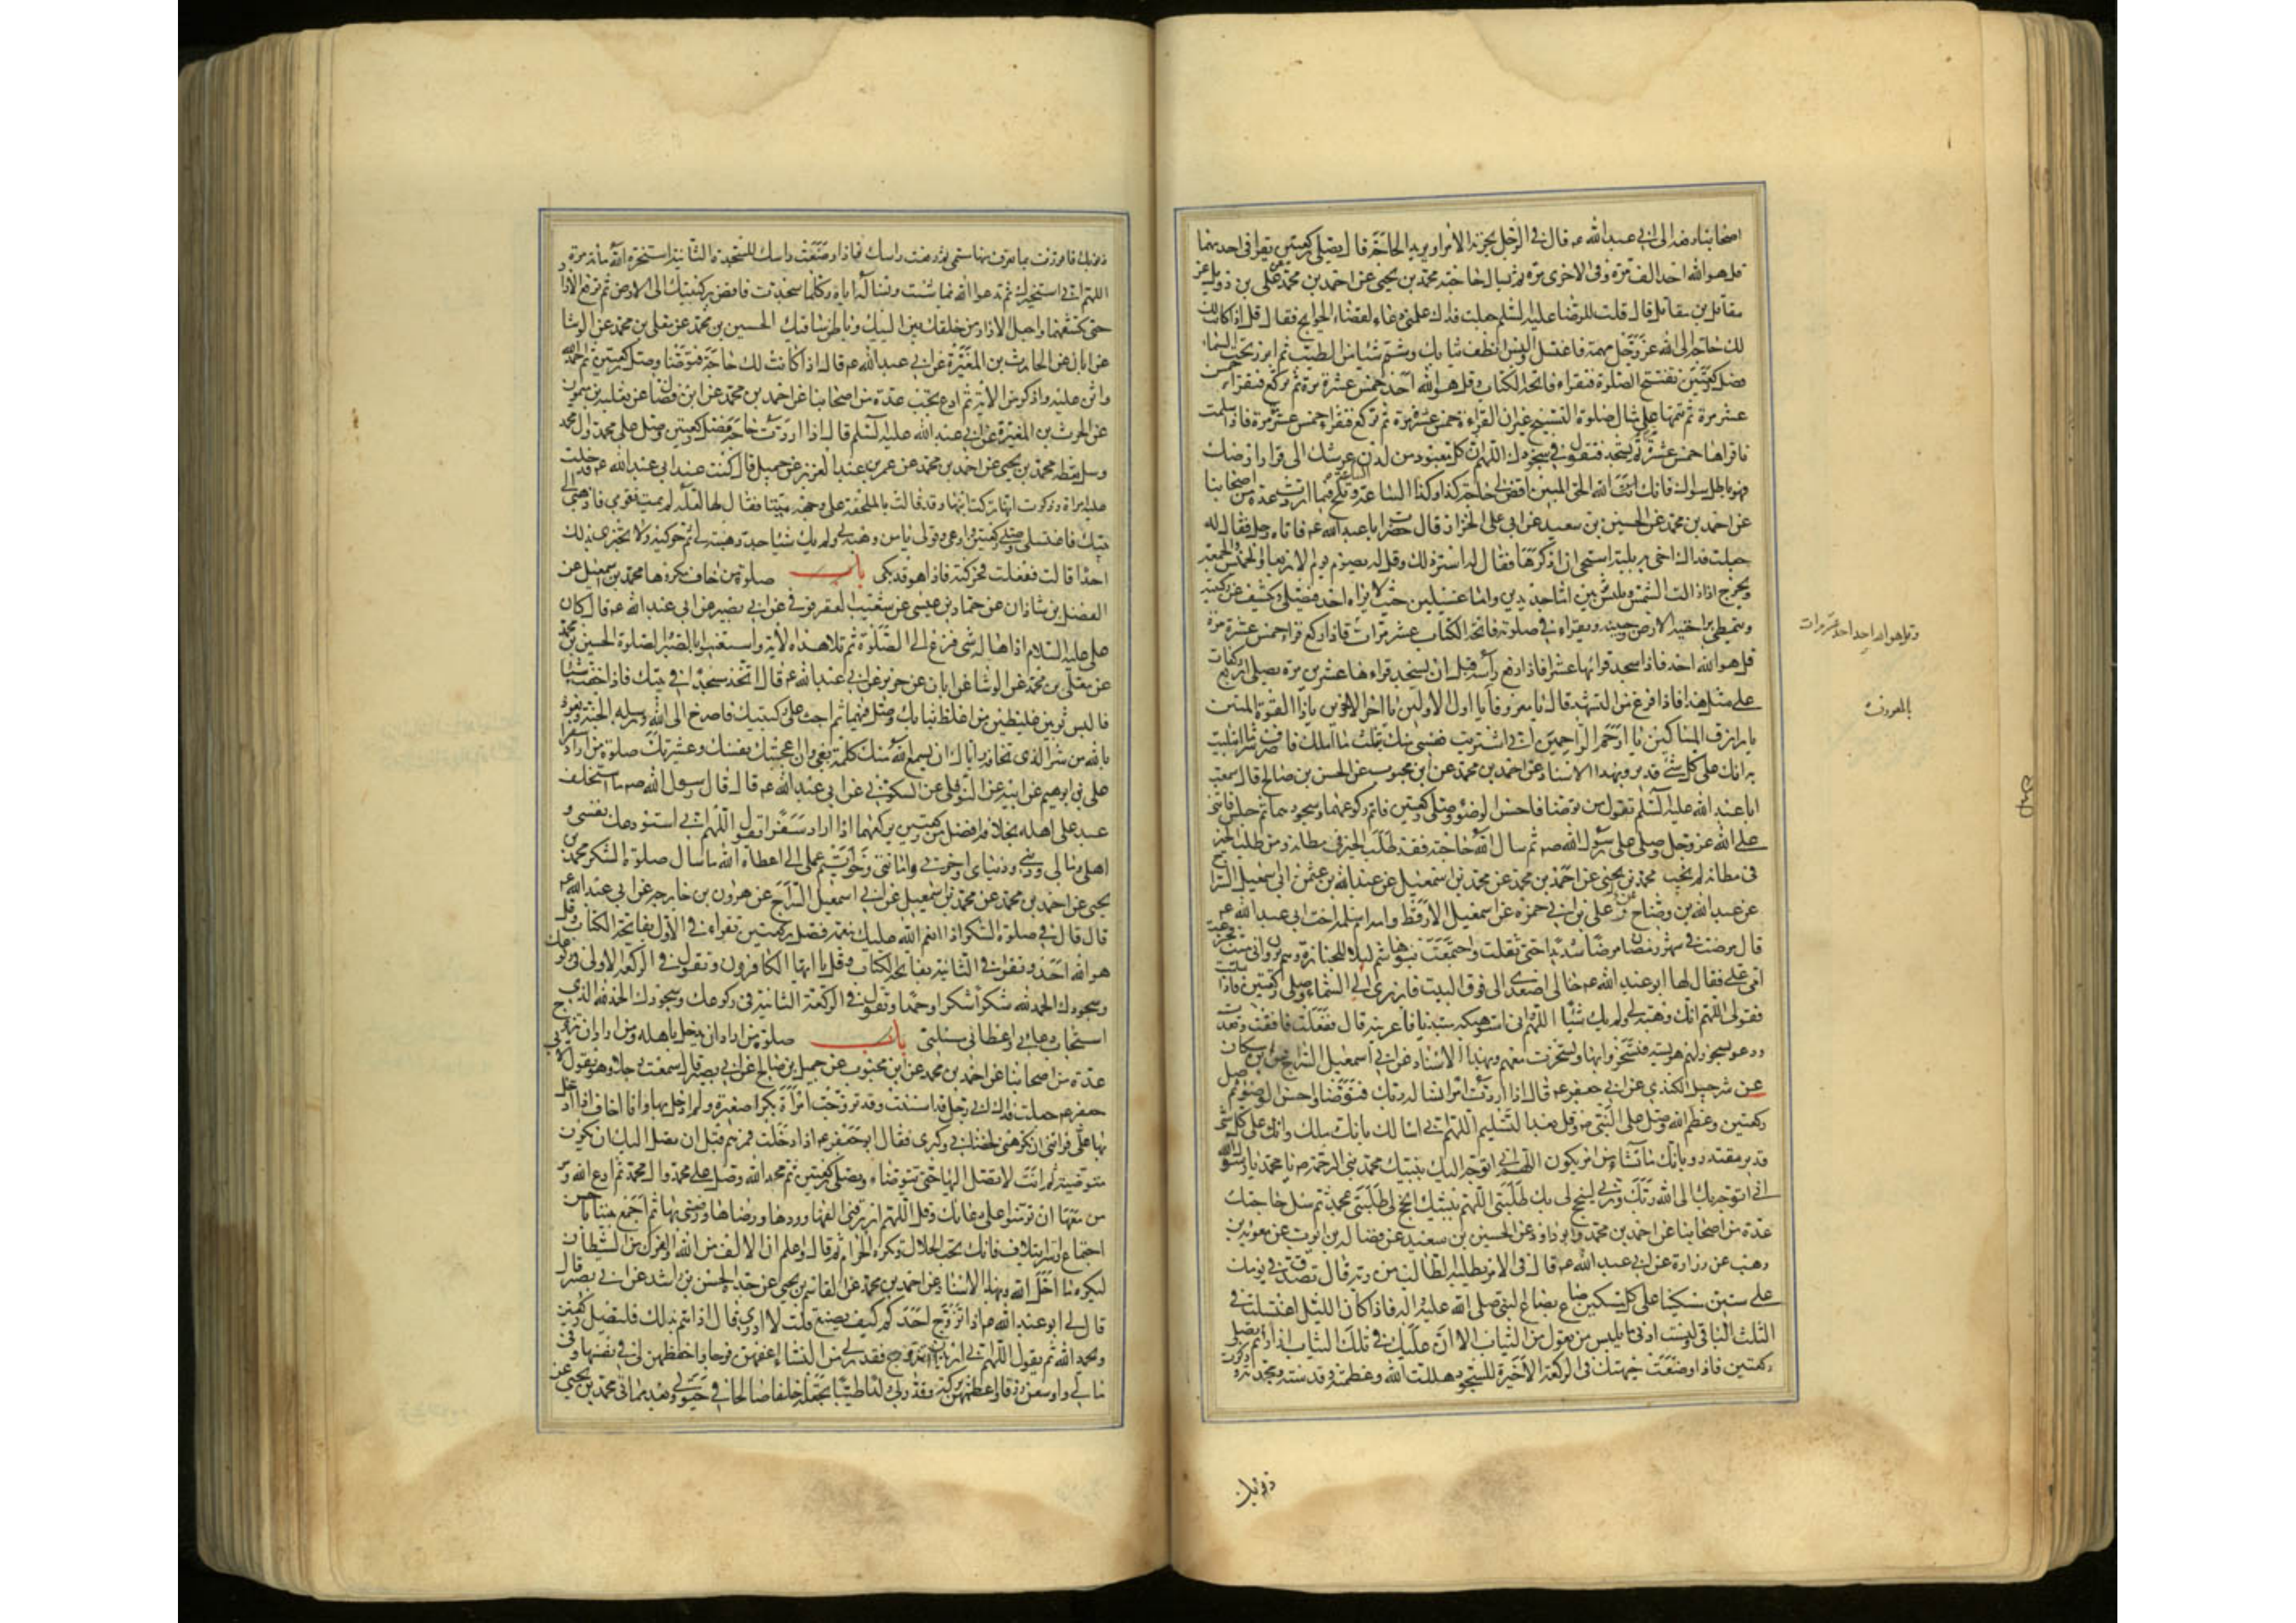 اصحابنا رفعه الى ابى عبد الله ع قال فى الرجل يحزنه الامر او يريد الحاجة قال يصلى ركعتين يقرا فى احديهما
قل هو الله احد الف مرة وفى الاخرى مرة ثم يسال حاجته محمد بن يحيى عن احمد بن محمد عن على بن دويل عن
مقاتل بن مقاتل قال قلت للرضا عليه السلم جعلت فداك علمنى دعاء لقضاء الحوايج فقال اذا كانت
لك حاجة الى الله عز وجل مهمة فاغتسل والبس انظف ثيابك وشم شيئا من الطيب ثم ابرز تحت السماء
فصل ركعتين تفتتح الصلوة فتقراء فاتحة الكتاب وقل هو الله احد خمس عشرة مرة ثم تركع فتقراء خمس
عشر مرة ثم تتمها على مثال صلوة التسبيح غير ان القراءة خمس عشرة مرة ثم تركع فتقراء خمس عشر مرة فاذا سلمت
فاقراها خمس عشرة مرة ثم تسجد فتقول فى سجودك اللهم ان كل معبود من لدن عرشك الى قرار ارضك
فهو باطل سواك فانك انت الله الحق المبين اقض لى حاجة كذا وكذا الساعة الساعة وتلح فيما اردت عدة من اصحابنا
عن احمد بن محمد عن الحسين بن سعيد عن ابى على الخزاز قال حضرت ابا عبد الله ع فاتاه رجل فقال له
جعلت فداك اخى به بلية استحيى ان اذكرها فقال له استر ذلك وقل له يصوم يوم الاربعا والخميس والجمعة
ويخرج اذا زالت الشمس ويلبس ثوبين اما جديدين واما غسيلين حيث لا يراه احد فيصلى ويكشف عن ركبتيه
ويتمطى براحتيه الارض وجنبيه ويقراء فى صلوته فاتحة الكتاب عشر مرات فاذا ركع قراء خمس عشرة مرة
وقل هو الله احد احد عشر مرات
قل هو الله احد فاذا سجد قراها عشرا فاذا رفع راسه قبل ان يسجد قراءها عشرين مرة يصلى اربع ركعات
على مثل هذا فاذا فرغ من التشهد قال يا معروفا يا اول الاولين يا اخر الاخرين يا ذا القوة المتين
بالمعروف
يا رازق المساكين يا ارحم الراحمين انى اشتريت نفسى منك بثلث ما املك فاصرف عنى شر ما ابتليت
به انك على كل شئ قدير وبهذا الاسناد عن احمد بن محمد عن ابن محبوب عن الحسن بن صالح قال سمعت
ابا عبد الله عليه السلم يقول من توضا فاحسن الوضوء وصلى ركعتين فاتم ركوعهما وسجودهما ثم جلس فاثنى
على الله عز وجل وصلى على رسول الله صه ثم سال الله حاجته فقد طلب الخير فى مظانه ومن طلب الخير
فى مظانه لم يخب محمد بن يحيى عن احمد بن محمد عن محمد بن اسمعيل عن عبد الله بن عثمن ابى اسمعيل السراج
عن عبد الله بن وضاح وعلى بن ابى حمزة عن اسمعيل الارقط وامه ام سلمة اخت ابى عبد الله ع
قال مرضت فى شهر رمضان مرضا شديدا حتى ثقلت واجتمعت بنو هاشم ليلا للجنازة وهم يرون انى ميت فجزعت
امى على فقال لها ابو عبد الله ع خالى اصعدى الى فوق البيت فابرزى الى السماء وصلى ركعتين فاذا سلمت
فقولى اللهم انك وهبته لى ولم يك شيئا اللهم انى استوهبكه مبتديا فاعرنيه قال ففعلت فافقت وقعدت
ودعوا بسحور لهم هريسة فتسحروا بها وتسحرت معهم وبهذا الاسناد عن ابى اسمعيل السراج عن ابن مسكان
عن شرحبيل الكندى عن ابى جعفر ع قال اذا اردت امرا تساله ربك فتوضا واحسن الوضوء ثم صل
ركعتين وعظم الله وصل على النبى صه وقل بعد التسليم اللهم انى اسالك بانك ملك وانك على كل شئ
قدير مقتدر وبانك ما تشاء من امر يكون اللهم انى اتوجه اليك بنبيك محمد نبى الرحمة صه يا محمد يا رسول الله
انى اتوجه بك الى الله ربك وربى لينجح لى بك طلبتى اللهم بنبيك انجح لى طلبتى بمحمد ثم سل حاجتك
عدة من اصحابنا عن احمد بن محمد وابو داود عن الحسين بن سعيد عن فضالة بن ايوب عن معوية بن
وهب عن زرارة عن ابى عبد الله ع قال فى الامر يطلبه الطالب من ربه قال تصدق فى يومك
على ستين مسكينا على كل مسكين صاع بصاع النبى صلى الله عليه واله فاذا كان الليل اغتسلت فى
الثلث الباقى ولبست ادنى ما يلبس من تعول من الثياب الا ان عليك فى تلك الثياب ازارا ثم تصلى
ركعتين فاذا وضعت جبهتك فى الركعة الاخيرة للسجود هللت الله وعظمته وقدسته ومجدته وذكرت
ذنوبك
ذنوبك فاقررت بما تعرف منها مسمى ثم رفعت راسك فاذا وضعت راسك للسجدة الثانية استخرت الله مائة مرة
اللهم انى استخيرك ثم تدعوا الله بما شئت وتساله اياه وكلما سجدت فافض بركبتيك الى الارض ثم ترفع الازار
حتى تكشفهما واجعل الازار من خلفك بين اليتيك وباطن ساقيك الحسين بن محمد عن معلى بن محمد عن الوشا
عن ابان عن الحارث بن المغيرة عن ابى عبد الله ع قال اذا كانت لك حاجة فتوضا وصل ركعتين ثم احمد الله
واثن عليه واذكر من الائه ثم ادع تجب عدة من اصحابنا عن احمد بن محمد عن ابن فضال عن ثعلبة بن ميمون
عن الحرث بن المغيرة عن ابى عبد الله عليه السلم قال اذا اردت حاجة فصل ركعتين وصل على محمد وال محمد
وسل تعطه محمد بن يحيى عن احمد بن محمد عن عمر بن عبد العزيز عن جميل قال كنت عند ابى عبد الله ع فدخلت
عليه امراة وذكرت انها تركت ابنها وقد قالت بالملحفة على وجهه ميتا فقال لها لعله لم يمت فقومى فاذهبى الى
بيتك فاغتسلى وصلى ركعتين وادعى وقولى يا من وهبه لى ولم يك شيئا جدد هبته لى ثم حركيه ولا تخبرى بذلك
احدا قالت ففعلت فحركته فاذا هو قد بكى باب صلوة من خاف مكروها محمد بن اسمعيل عن
الفضل بن شاذان عن حماد بن عيسى عن شعيب العقرقوفى عن ابى بصير عن ابى عبد الله ع قال كان
على عليه السلام اذا هاله شئ فزع الى الصلوة ثم تلا هذه الاية واستعينوا بالصبر والصلوة الحسين بن محمد
عن معلى بن محمد عن الوشا عن ابان عن حريز عن ابى عبد الله ع قال اتخذ مسجدا فى بيتك فاذا خفت شيئا
فالبس ثوبين غليظين من اغلظ ثيابك وصل فيهما ثم اجث على ركبتيك فاصرخ الى الله وسله الجنة وتعوذ
بالله من شر الذى تخافه واياك ان يسمع الله منك كلمة بغى وان اعجبتك نفسك وعشيرتك صلوة من اراد سفرا
على بن ابرهيم عن ابيه عن النوفلى عن السكونى عن ابى عبد الله ع قال قال رسول الله صه ما استخلف
عبد على اهله بخلافة افضل من ركعتين يركعهما اذا اراد سفرا يقول اللهم انى استودعك نفسى و
اهلى ومالى ودينى ودنياى واخرتى وامانتى وخواتيم عملى الا اعطاه الله ما سال صلوة الشكر محمد بن
يحيى عن احمد بن محمد عن محمد بن اسمعيل عن ابى اسمعيل السراج عن هرون بن خارجة عن ابى عبد الله ع
قال قال فى صلوة الشكر اذا انعم الله عليك بنعمة فصل ركعتين تقراء فى الاولى بفاتحة الكتاب وقل
هو الله احد وتقراء فى الثانية بفاتحة الكتاب وقل يا ايها الكافرون وتقول فى الركعة الاولى فى ركوعك
وسجودك الحمد لله شكرا شكرا وحمدا وتقول فى الركعة الثانية فى ركوعك وسجودك الحمد لله الذى
استجاب دعائى واعطانى مسئلتى باب صلوة من اراد ان يدخل باهله ومن اراد ان يتزوج
عدة من اصحابنا عن احمد بن محمد عن ابن محبوب عن جميل بن صالح عن ابى بصير قال سمعت رجلا وهو يقول لابى
جعفر ع جعلت فداك انى رجل قد اسننت وقد تزوجت امراة بكرا صغيرة ولم ادخل بها وانا اخاف اذا ادخل
بها على فراشى ان تكرهنى لخضابى وكبرى فقال ابو جعفر ع اذا دخلت فمرهم قبل ان تصل اليك ان تكون
متوضية ثم انت لا تصل اليها حتى تتوضاء وتصلى ركعتين ثم مجد الله وصل على محمد وال محمد ثم ادع الله ومر
من معها ان يؤمنوا على دعائك وقل اللهم ارزقنى الفها وودها ورضاها وارضنى بها ثم اجمع بيننا باحسن
اجتماع واسر ايتلاف فانك تحب الحلال وتكره الحرام ثم قال واعلم ان الالف من الله والفرك من الشيطان
ليكره ما احل الله وبهذا الاسناد عن احمد بن محمد عن القاسم بن يحيى عن جده الحسن بن راشد عن ابى بصير قال
قال لى ابو عبد الله ع اذا تزوج احدكم كيف يصنع قلت لا ادرى قال اذا هم بذلك فليصل ركعتين
ويحمد الله ثم يقول اللهم انى اريد ان اتزوج فقدر لى من النسا اعفهن فرجا واحفظهن لى فى نفسها وفى
مالى واوسعهن رزقا واعظمهن بركة وقدر لى ولدا طيبا تجعله خلفا صالحا فى حيوتى وبعد مماتى محمد بن يحيى عن